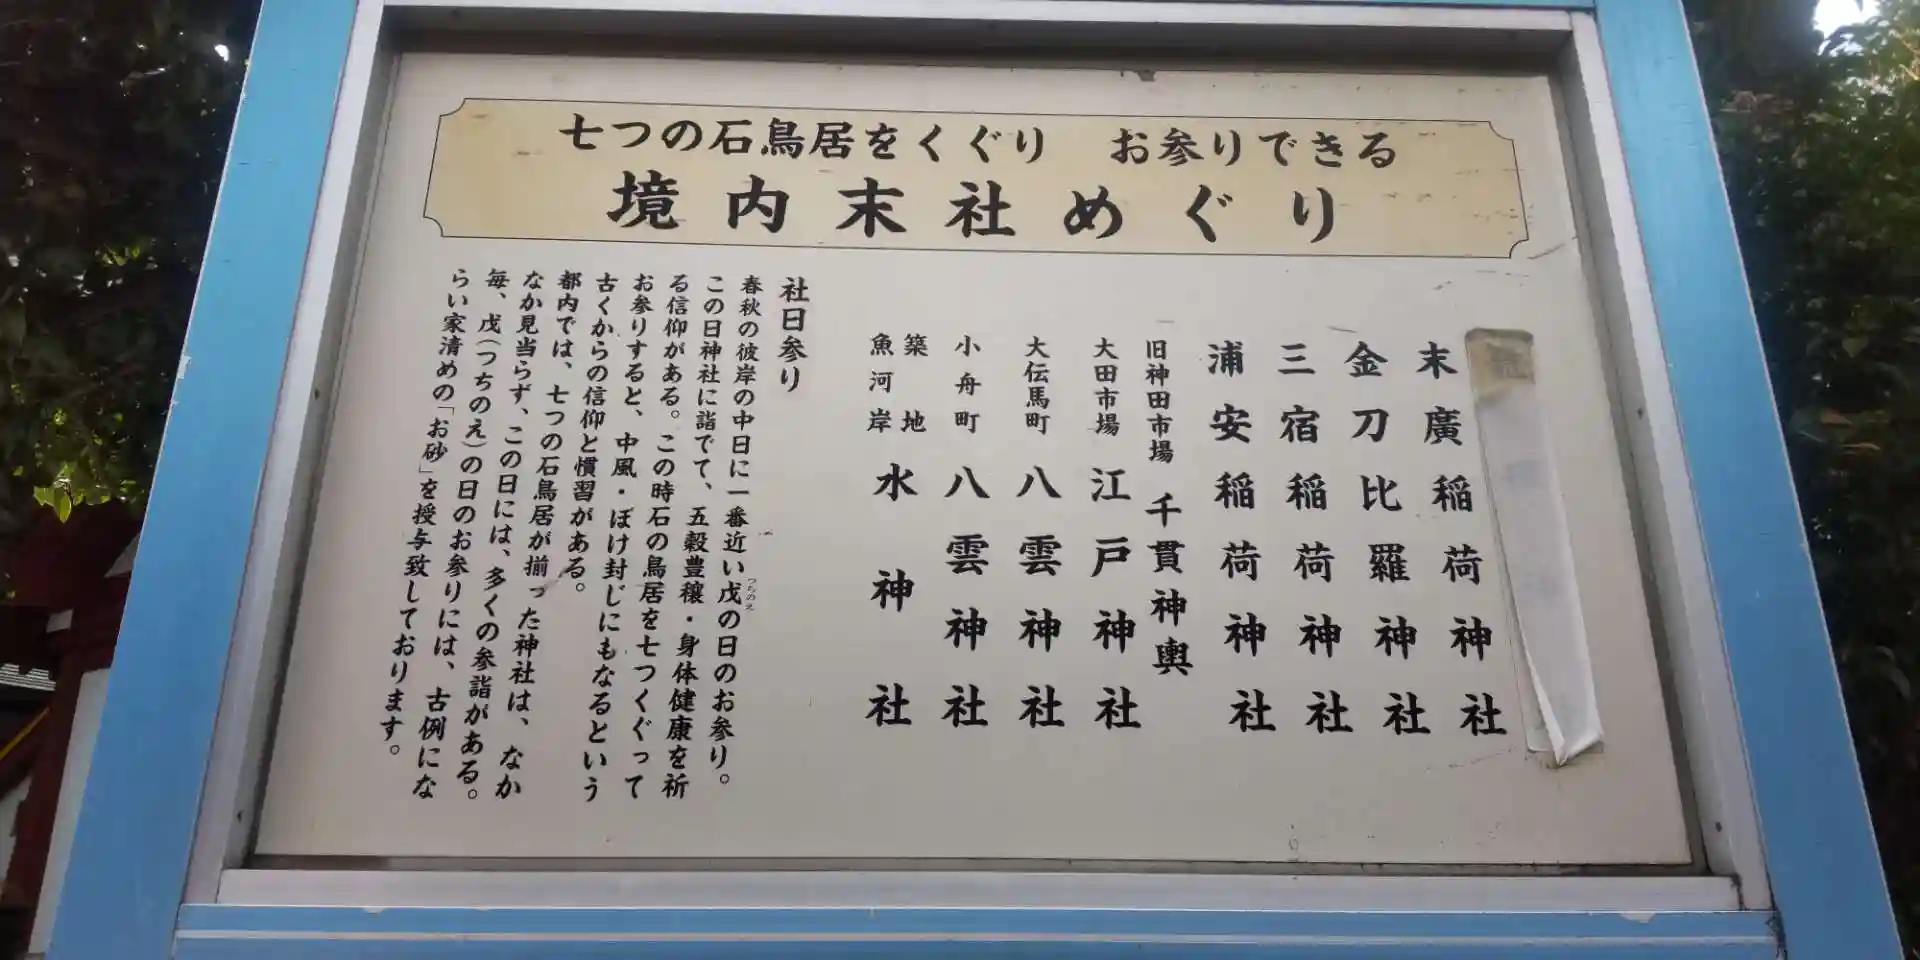 七つの石鳥居をくぐり　お参りできる
境内末社めぐり
末廣稲荷神社
金刀比羅神社
三宿稲荷神社
浦安稲荷神社
旧神田市場 千貫神輿
大田市場 江戸神社
大伝馬町 八雲神社
小舟町 八雲神社
築地
魚河岸 水神社
社日参り
春秋の彼岸の中日に一番近い戊の日のお参り。
つちのえ
この日神社に詣でて、五穀豊穣・身体健康を祈
る信仰がある。この時石の鳥居を七つくぐって
お参りすると、中風・ぼけ封じにもなるという
古くからの信仰と慣習がある。
都内では、七つの石鳥居が揃った神社は、なか
なか見当らず、この日には、多くの参詣がある。
毎、戊（つちのえ）の日のお参りには、古例にな
らい家清めの「お砂」を授与致しております。